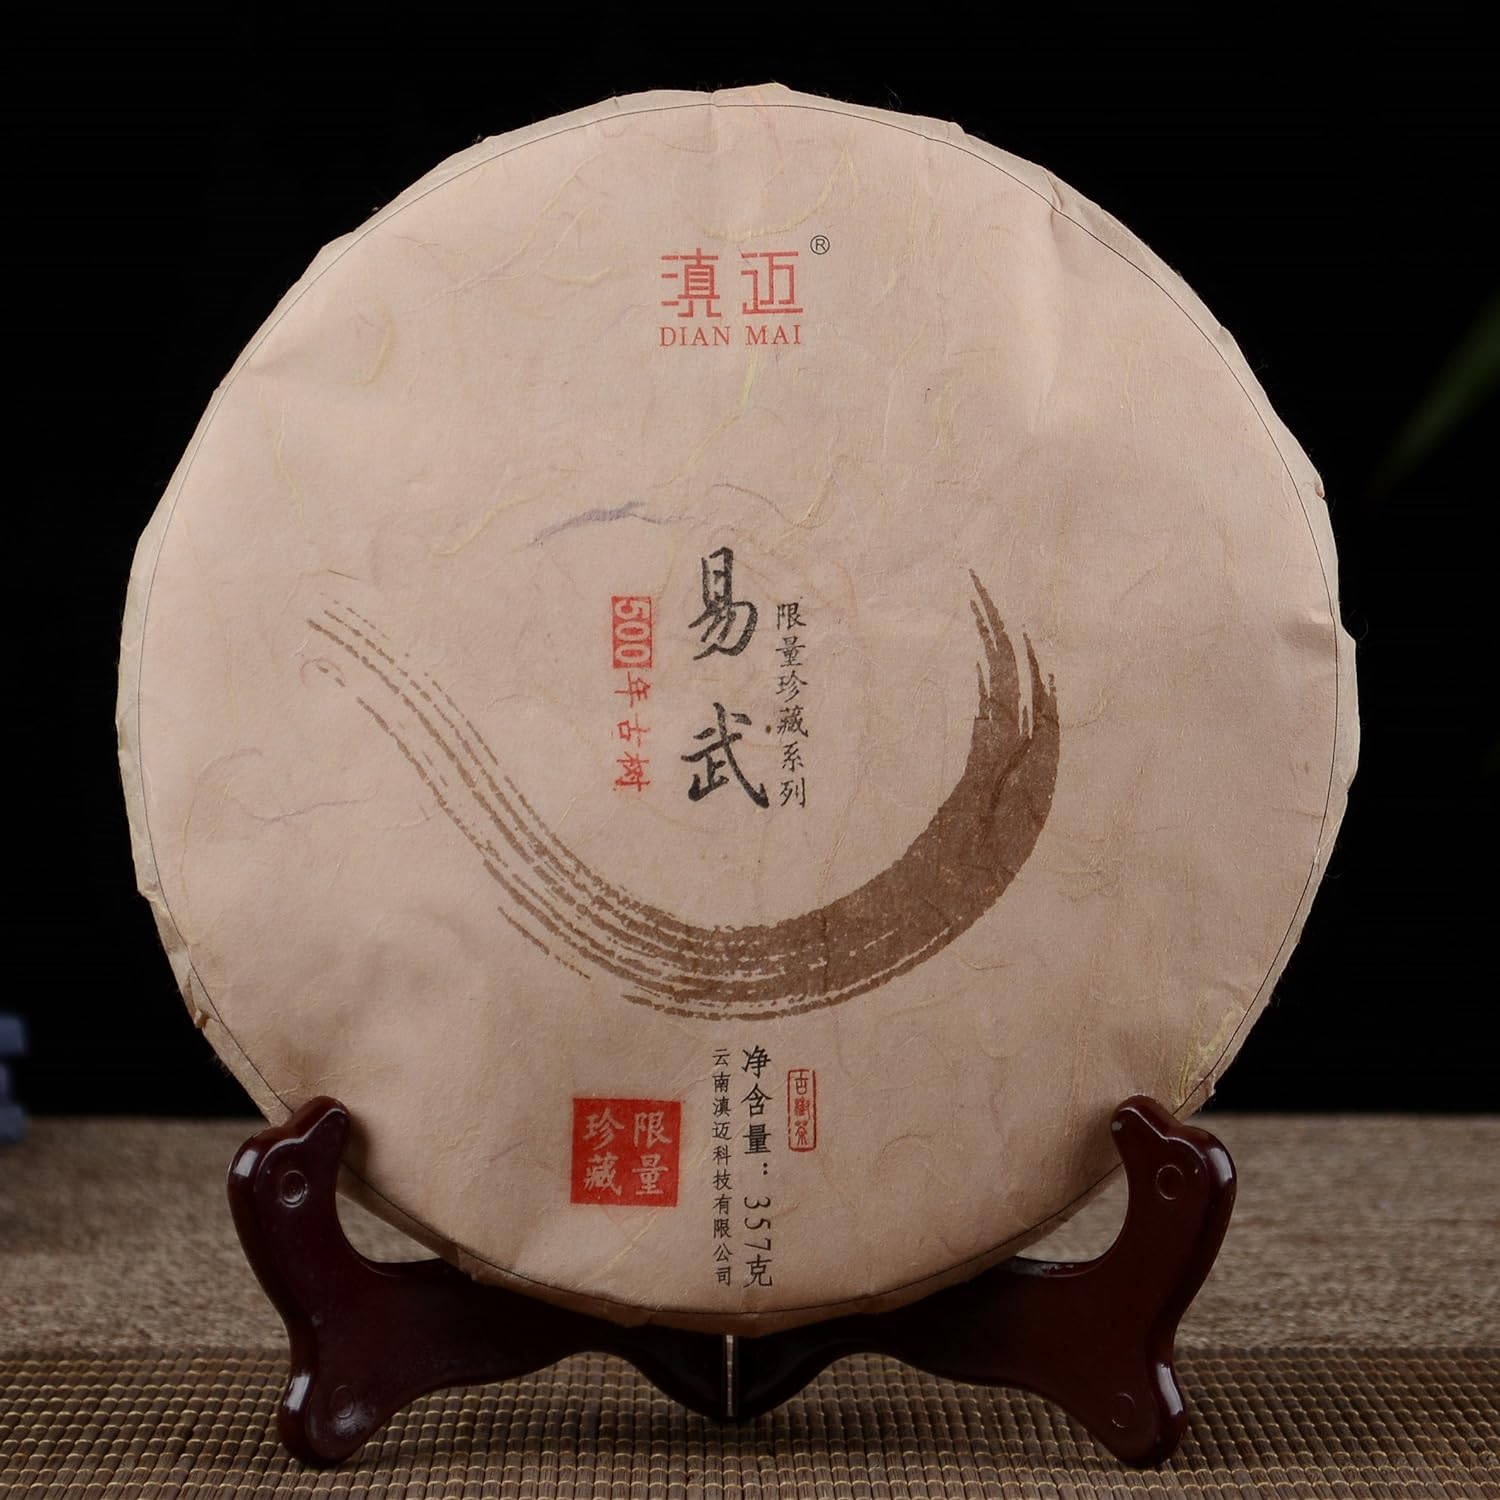 滇迈®
DIAN MAI
限量珍藏系列
易武
500年古树
古树茶
净含量：357克
云南滇迈科技有限公司
限量
珍藏